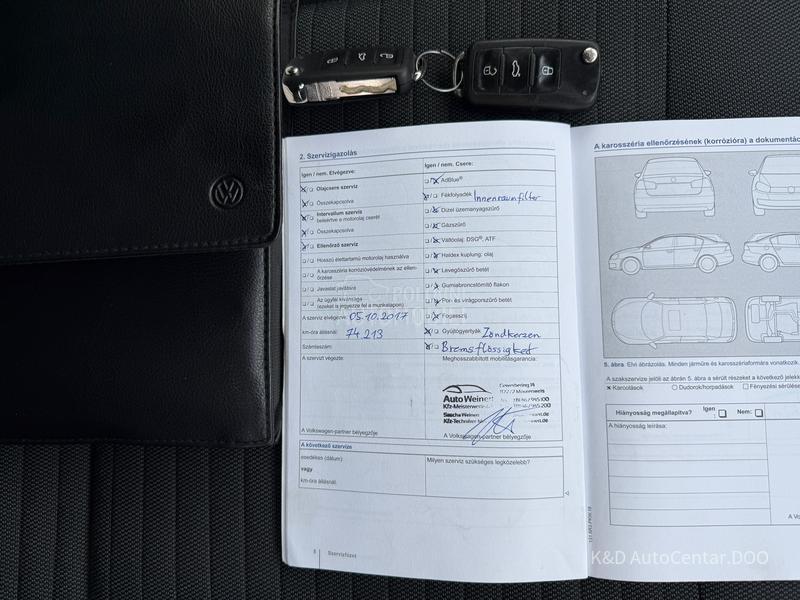 2. Szervizigazolás
Igen / nem. Elvégezve:
Olajcsere szerviz
Összekapcsolva
Intervallum szerviz
beleértve a motorolaj cserét
Összekapcsolva
Ellenőrző szerviz
Hosszú élettartamú motorolaj használva
A karosszéria korrózióvédelmének az ellen-
őrzése
Javaslat javításra
Az ügyfél kívánsága
(ezeket is jegyezze fel a munkalapon)
A szerviz elvégezve: 05.10.2017
km-óra állásnál: 74.213
Számlaszám:
A szervizt végezte:
A Volkswagen-partner bélyegzője
Igen / nem. Csere:
AdBlue®
Fékfolyadék Innenraumfilter
Dízel üzemanyagszűrő
Gázszűrő
Váltóolaj: DSG®, ATF
Haldex kuplung: olaj
Levegőszűrő betét
Gumiabroncstömítő flakon
Por- és virágporszűrő betét
Fogasszíj
Gyújtógyertyák Zündkerzen
Bremsflüssigkeit
Meghosszabbított mobilitásgarancia:
Auto Weinert
Kfz-Meisterwerkstatt
Sascha Weinert
Kfz-Techniker
A Volkswagen-partner bélyegzője
A következő szerviz
esedékes (dátum):
vagy
km-óra állásnál:
Milyen szerviz szükséges legközelebb?
8 Szervizfüzet
A karosszéria ellenőrzésének (korrózióra) a dokumentác
5. ábra Elvi ábrázolás. Minden járműre és karosszériaformára vonatkozik.
A szakszervize jelöli az ábrán 5. ábra a sérült részeket a következő jelekk
Karcolások Dudorok/horpadások Fényezési sérülése
Hiányosság megállapítva? Igen: Nem:
A hiányosság leírása:
A Vo
K&D AutoCentar.DOO